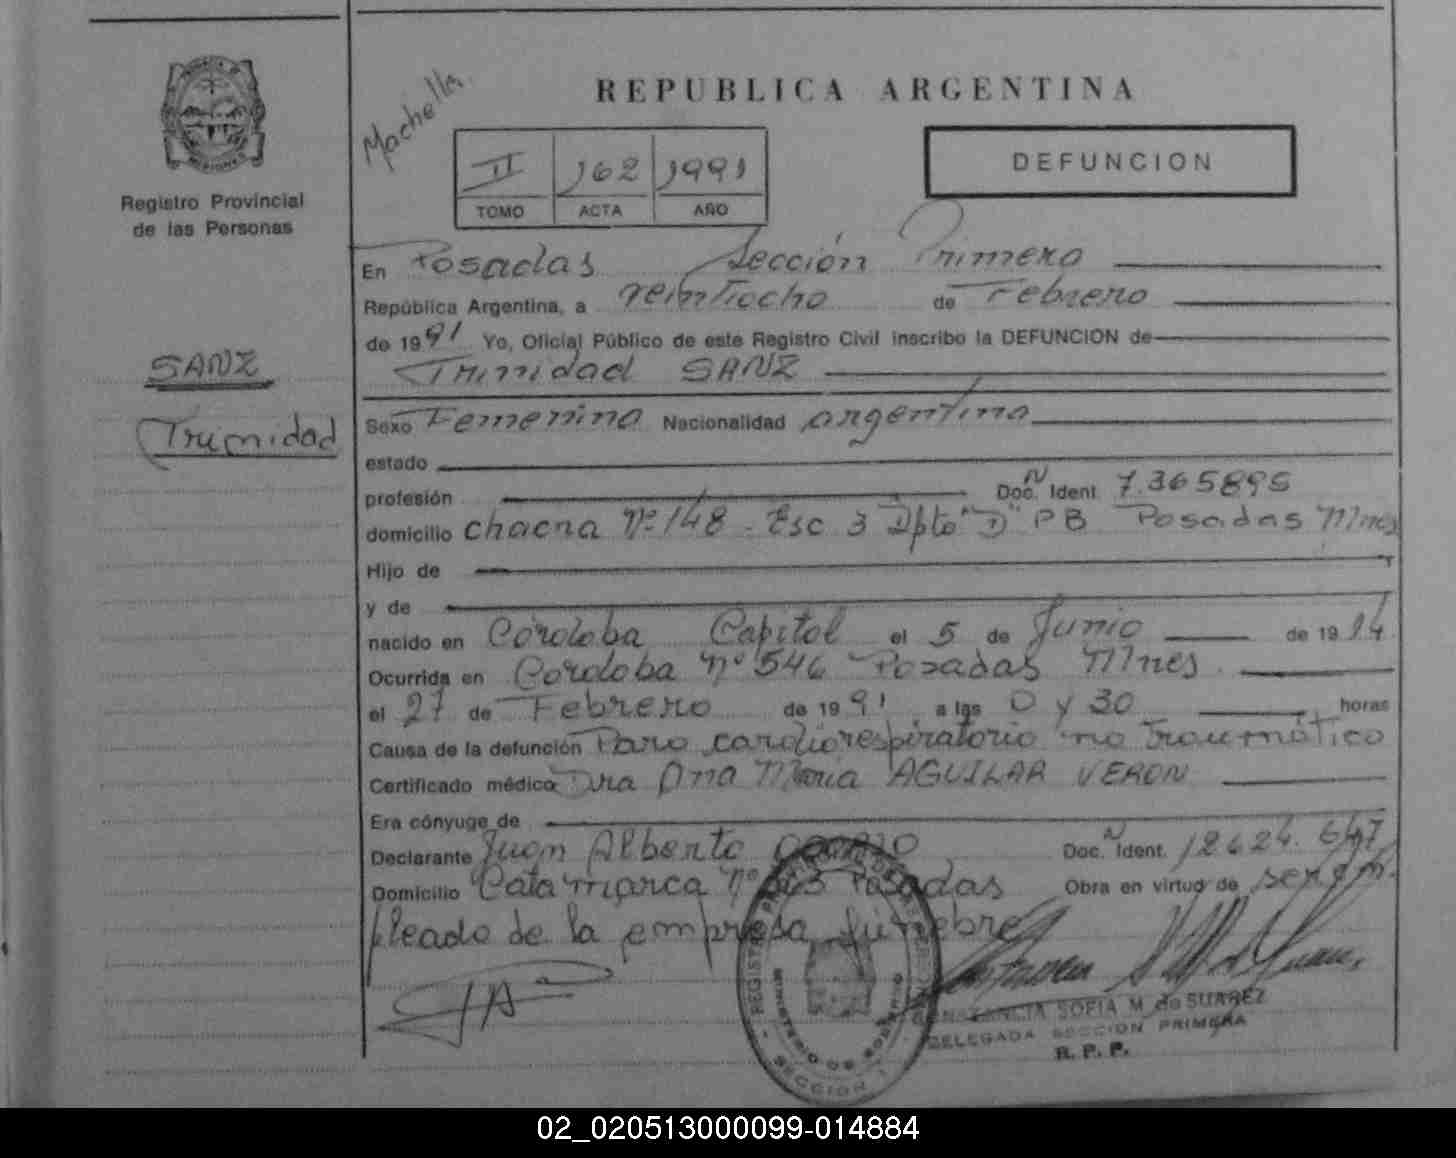 REPUBLICA ARGENTINA
Registro Provincial
de las Personas
SANZ
Trinidad
Machella
II 162 1991
TOMO ACTA AÑO
DEFUNCION
En Posadas Sección Primera
República Argentina, a veintiocho de Febrero
de 1991 Yo, Oficial Público de este Registro Civil inscribo la DEFUNCION de
Trinidad SANZ
Sexo Femenino Nacionalidad argentina
estado
profesión Doc. N Ident 7.365895
domicilio chacra Nº 148 - Esc 3 Dpto "D" PB Posadas Mnes
Hijo de
y de
nacido en Córdoba Capital el 5 de Junio de 1914
Ocurrida en Cordoba nº 546 Posadas Mnes
el 27 de Febrero de 1991 a las 0 y 30 horas
Causa de la defunción Paro cardiorespiratorio no traumático
Certificado médico Dra Ana Maria AGUILAR VERON
Era cónyuge de
Declarante Juan Alberto Doc. N Ident. 12624.647
Domicilio Catamarca nº Posadas Obra en virtud de ser em
pleado de la empresa fúnebre
CONSTANCIA SOFIA M. de SUAREZ
DELEGADA SECCION PRIMERA
R. P. P.
REGISTRO PROVINCIAL DE LAS PERSONAS
MINISTERIO DE GOBIERNO
SECCION 1
02_020513000099-014884